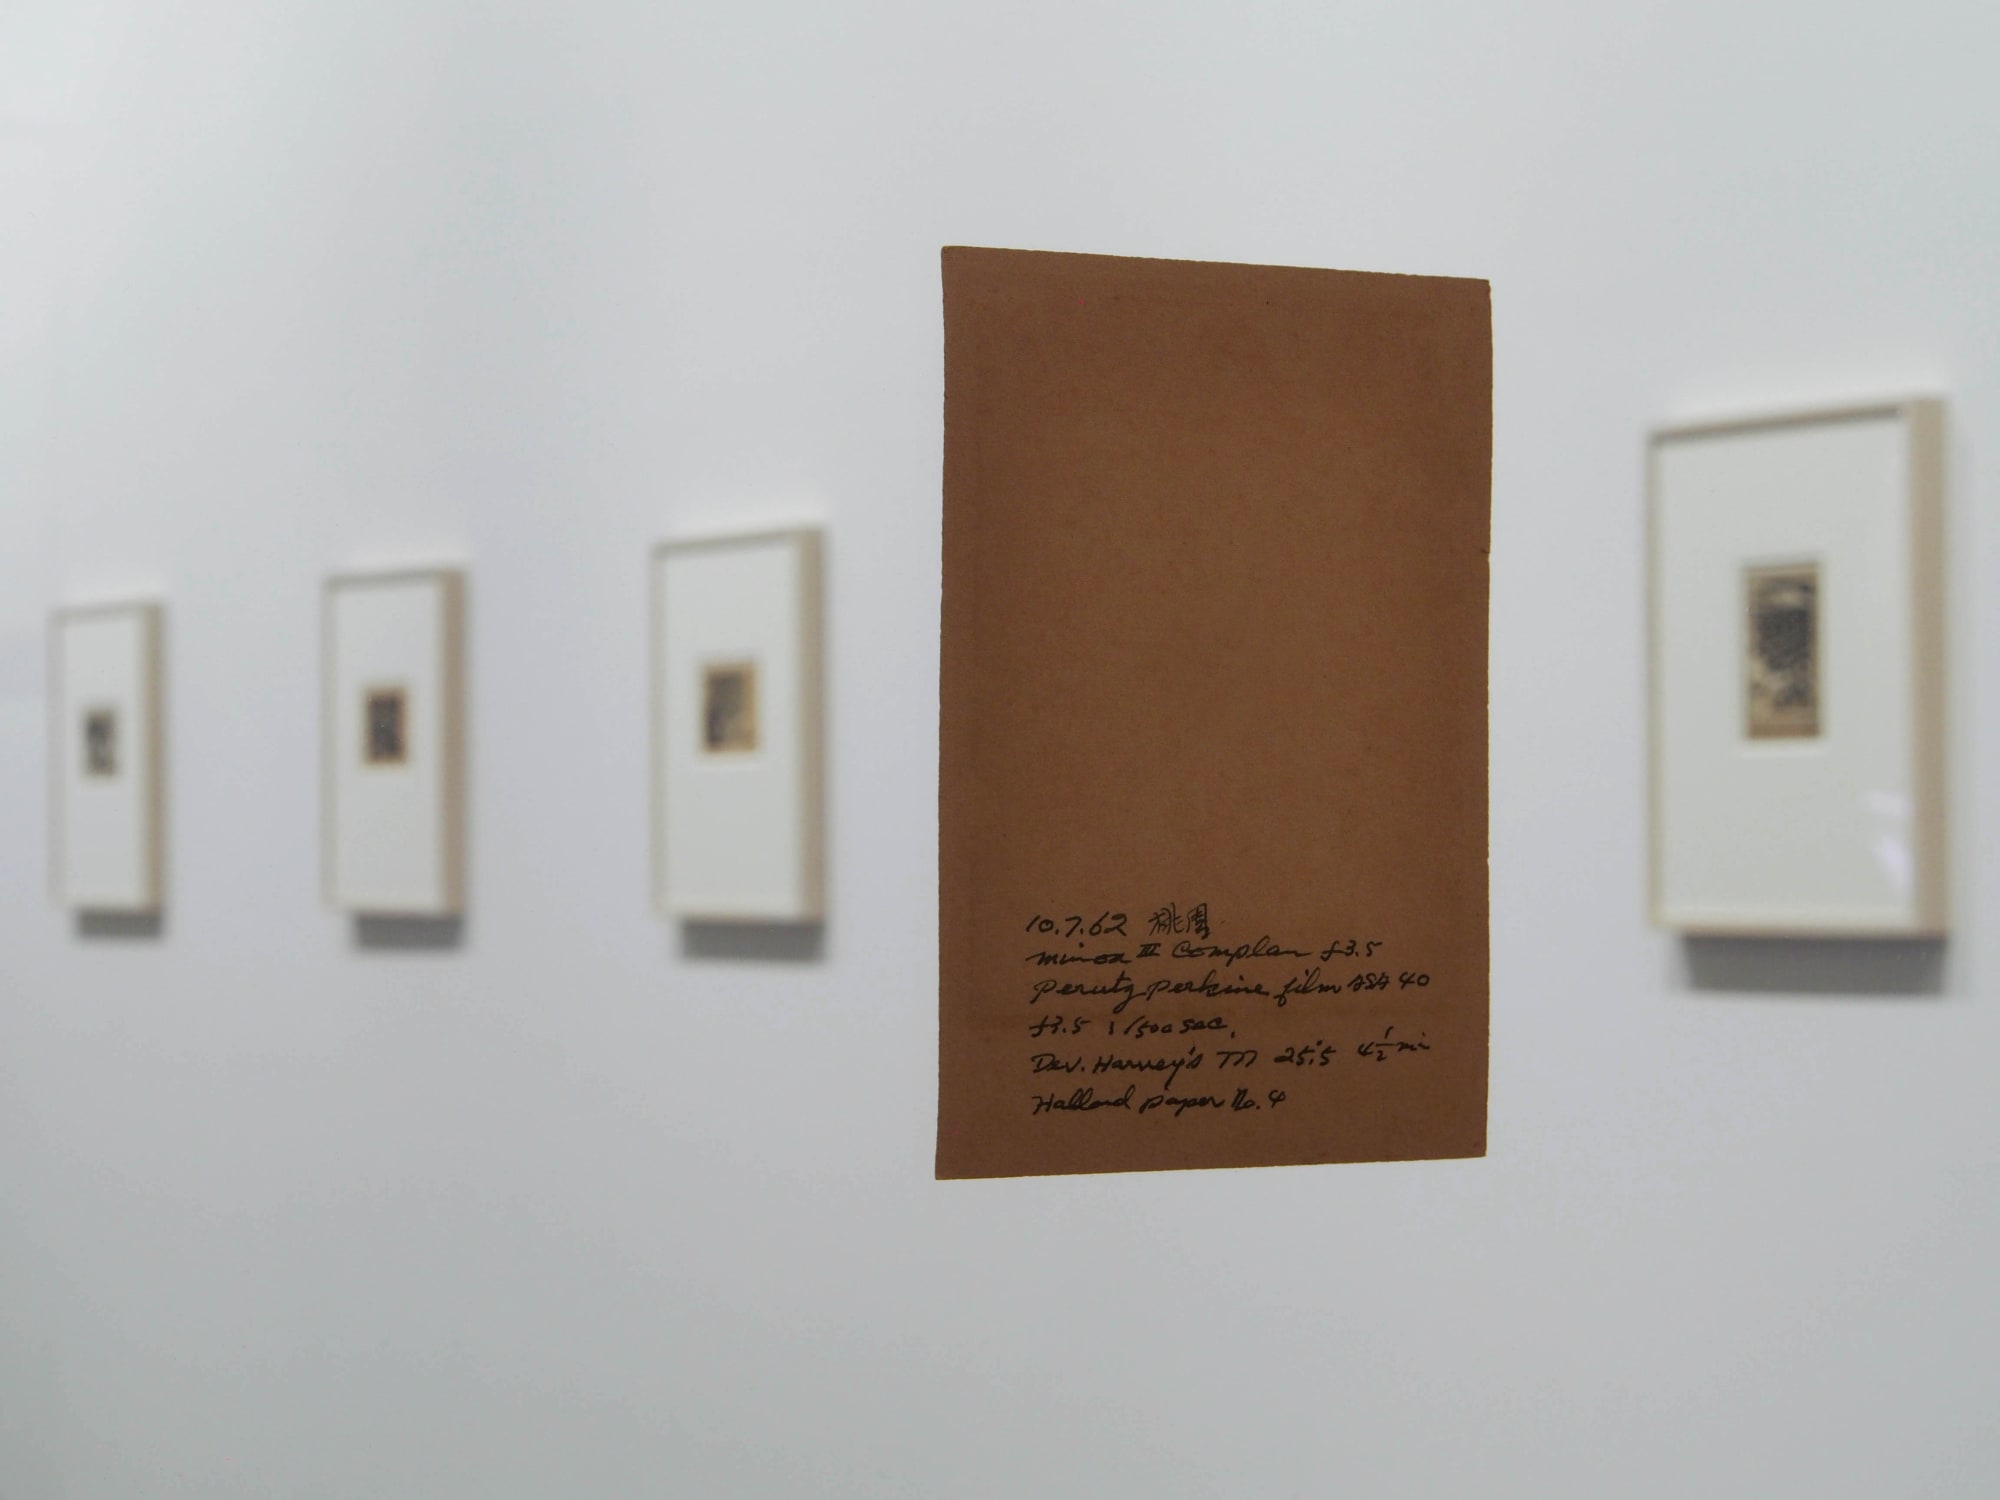 10.7.62 桃園
minox III Complan f3.5
Perutz Perkine film ASA 40
f3.5 1/500 sec.
Dev. Harvey's 777 25.5° 4 1/2 min
paper No. 4